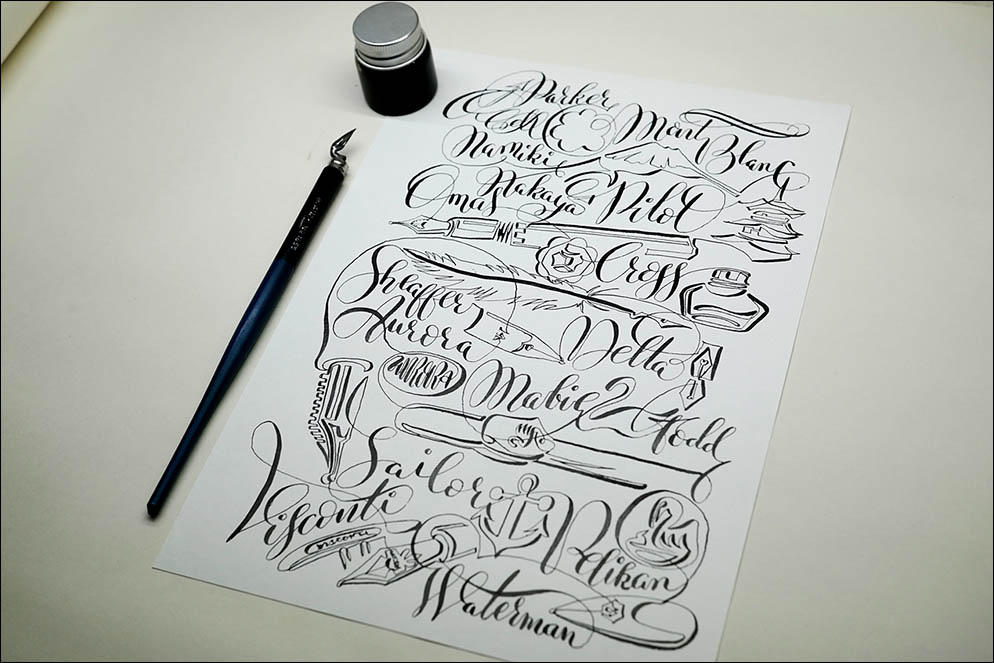 Parker
Mont Blanc
Namiki
Nakaya & Pilot
Omas
Cross
Sheaffer
Aurora
Delta
AURORA
Mabie & Todd
Sailor
Visconti
VISCONTI
Pelikan
Waterman